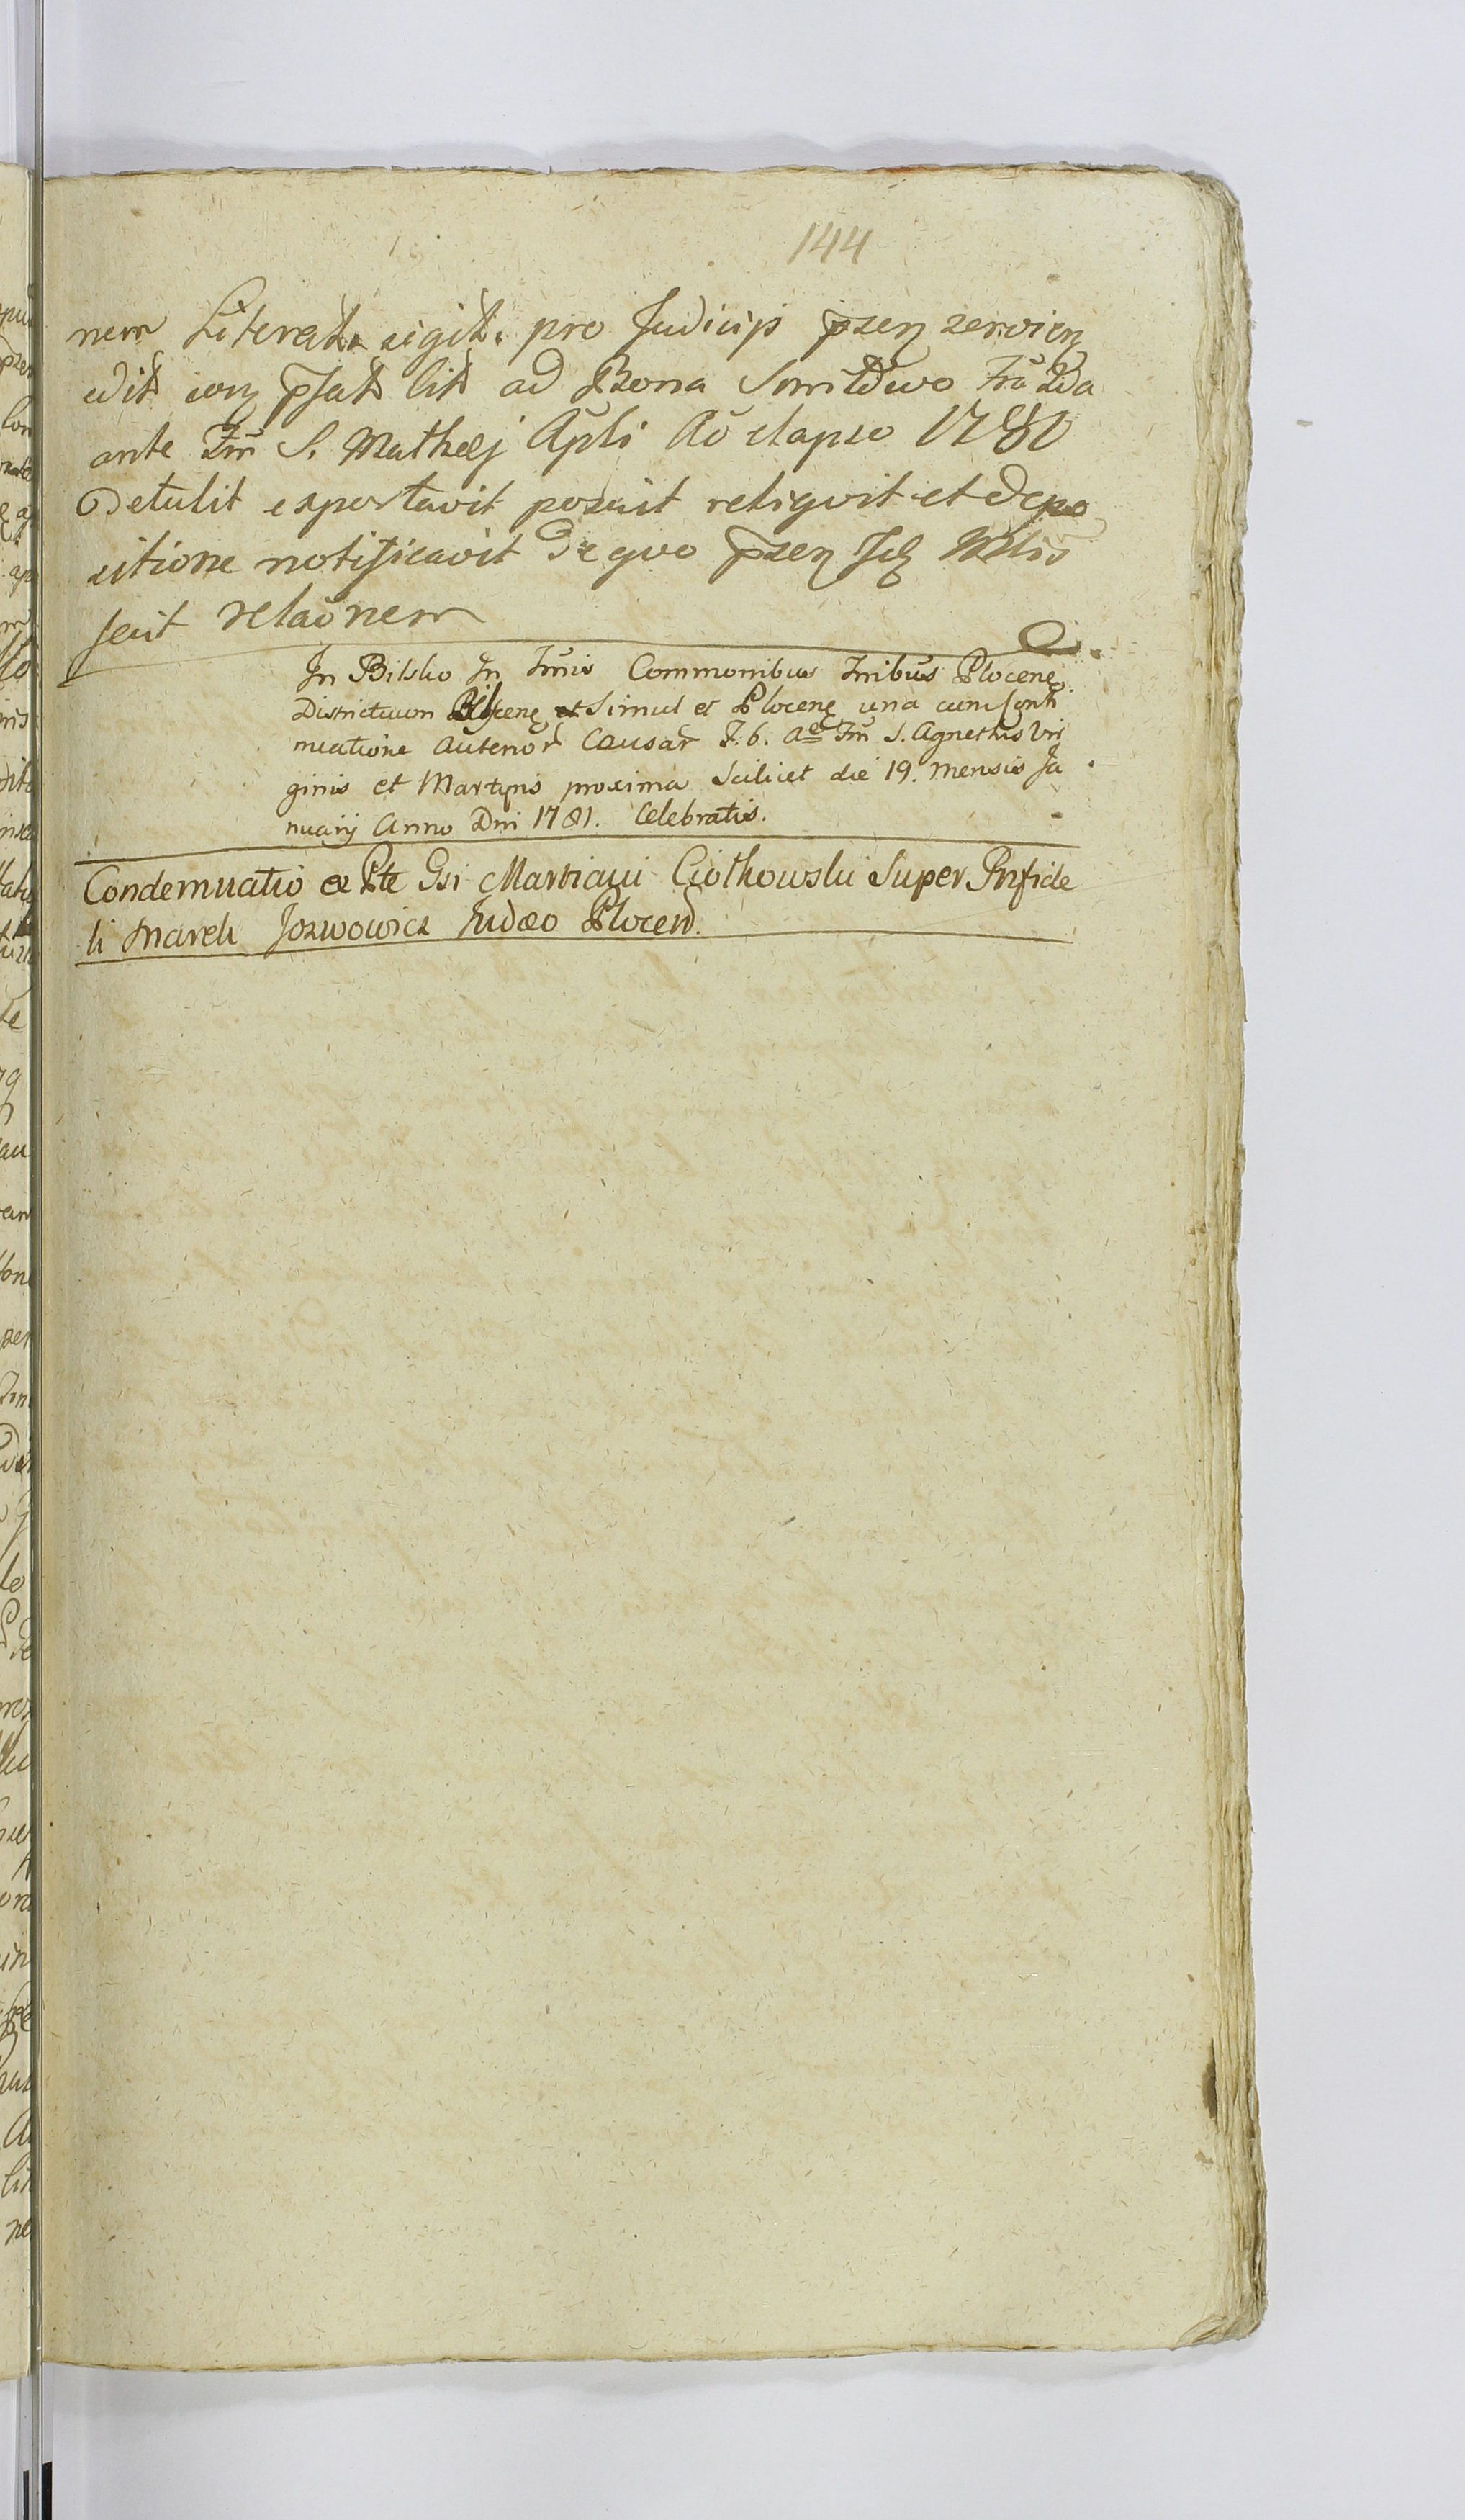 144
nem Literat. sigit. pro Judicijs psen servien
edit psat lit ad Bona Smiłowo Fra 2da
ante Fm S. Mathei Apli Ao elapso 1780
Detulit exportavit posuit reliqvit et depo
sitione notificavit de qvo psen
fecit relaonem
In Bilsko In Tmis Commonibus Tribus Plocen
Districtuum Bilscen et Simul et Plocen una cum Conti
nuatione Anterior Causar F. 6. Ae Fm S. Agnethis Vir
ginis et Martyris proxima Scilicet die 19. Mensis Ja
nuarij Anno Dni 1781. Celebratis.
Condemnatio ex Pte Gsi Marciani Ciołkowski Super Infide
li Marek Jozwowicz Judæo Plocen.